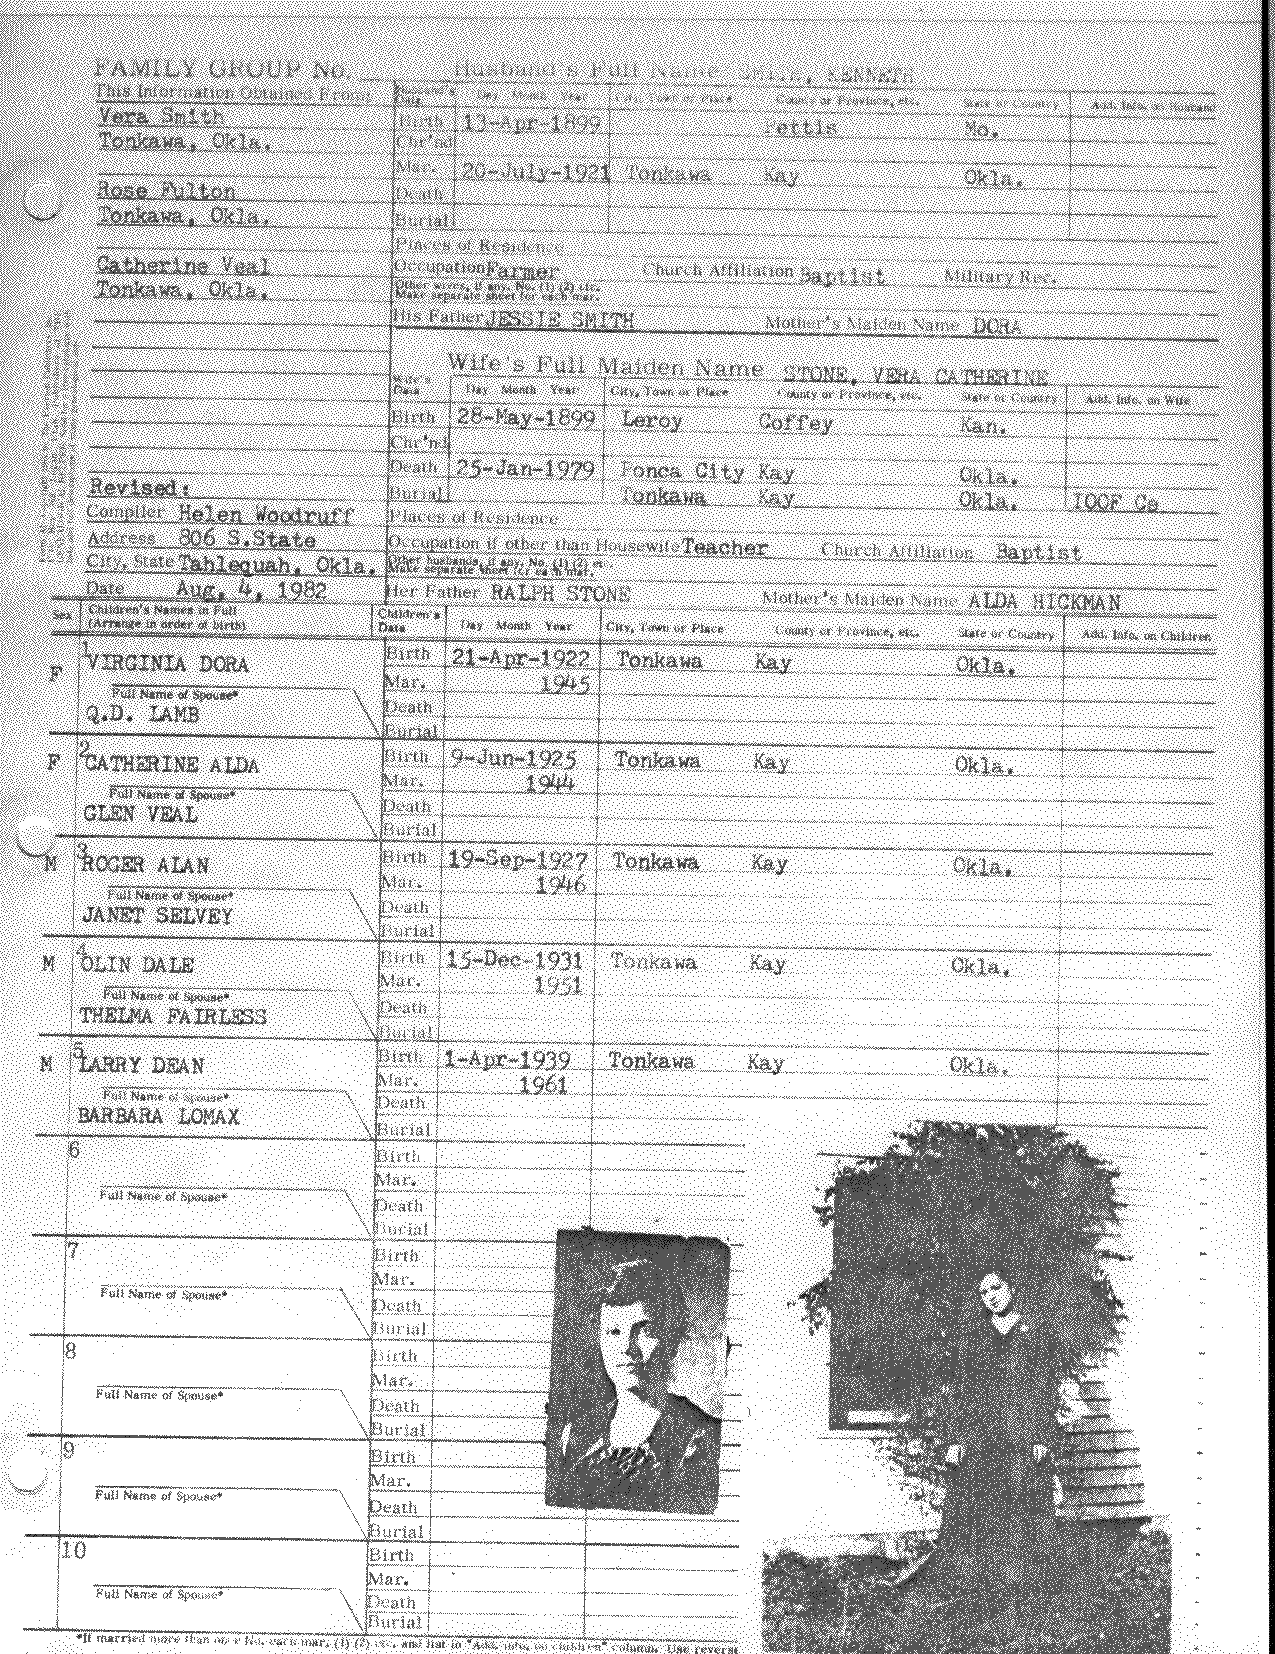 FAMILY GROUP No. Husband's Full Name SMITH, KENNETH
This Information Obtained From: Husband's Data Day Month Year City, Town or Place County or Province, etc. State or Country Add. Info. on Husband
Vera Smith Birth 13-Apr-1899 Pettis Mo.
Tonkawa, Okla. Chr'nd
Mar. 20-July-1921 Tonkawa Kay Okla.
Rose Fulton Death
Tonkawa, Okla. Burial
Places of Residence
Catherine Veal Occupation Farmer Church Affiliation Baptist Military Rec.
Tonkawa, Okla. Other wives, if any. No. (1) (2) etc.
Make separate sheet for each mar.
His Father JESSIE SMITH Mother's Maiden Name DORA
Wife's Full Maiden Name STONE, VERA CATHERINE
Wife's Data Day Month Year City, Town or Place County or Province, etc. State or Country Add. Info. on Wife
Birth 28-May-1899 Leroy Coffey Kan.
Chr'nd
Death 25-Jan-1979 Ponca City Kay Okla.
Revised: Burial Tonkawa Kay Okla. IOOF Ce
Compiler Helen Woodruff Places of Residence
Address 806 S.State Occupation if other than Housewife Teacher Church Affiliation Baptist
City, State Tahlequah, Okla. Other husbands, if any. No. (1) (2) etc.
Make separate sheet for each mar.
Date Aug. 4, 1982 Her Father RALPH STONE Mother's Maiden Name ALDA HICKMAN
Sex Children's Names in Full (Arrange in order of birth) Children's Data Day Month Year City, Town or Place County or Province, etc. State or Country Add. Info. on Children
F 1 VIRGINIA DORA Birth 21-Apr-1922 Tonkawa Kay Okla.
Mar. 1945
Full Name of Spouse* Death
Q.D. LAMB Burial
F 2 CATHERINE ALDA Birth 9-Jun-1925 Tonkawa Kay Okla.
Mar. 1944
Full Name of Spouse* Death
GLEN VEAL Burial
M 3 ROGER ALAN Birth 19-Sep-1927 Tonkawa Kay Okla.
Mar. 1946
Full Name of Spouse* Death
JANET SELVEY Burial
M 4 OLIN DALE Birth 15-Dec-1931 Tonkawa Kay Okla.
Mar. 1951
Full Name of Spouse* Death
THELMA FAIRLESS Burial
M 5 LARRY DEAN Birth 1-Apr-1939 Tonkawa Kay Okla.
Mar. 1961
Full Name of Spouse* Death
BARBARA LOMAX Burial
6 Birth
Mar.
Full Name of Spouse* Death
Burial
7 Birth
Mar.
Full Name of Spouse* Death
Burial
8 Birth
Mar.
Full Name of Spouse* Death
Burial
9 Birth
Mar.
Full Name of Spouse* Death
Burial
10 Birth
Mar.
Full Name of Spouse* Death
Burial
*If married more than once No. each mar. (1) (2) etc. and list in "Add. info. on children" column. Use reverse